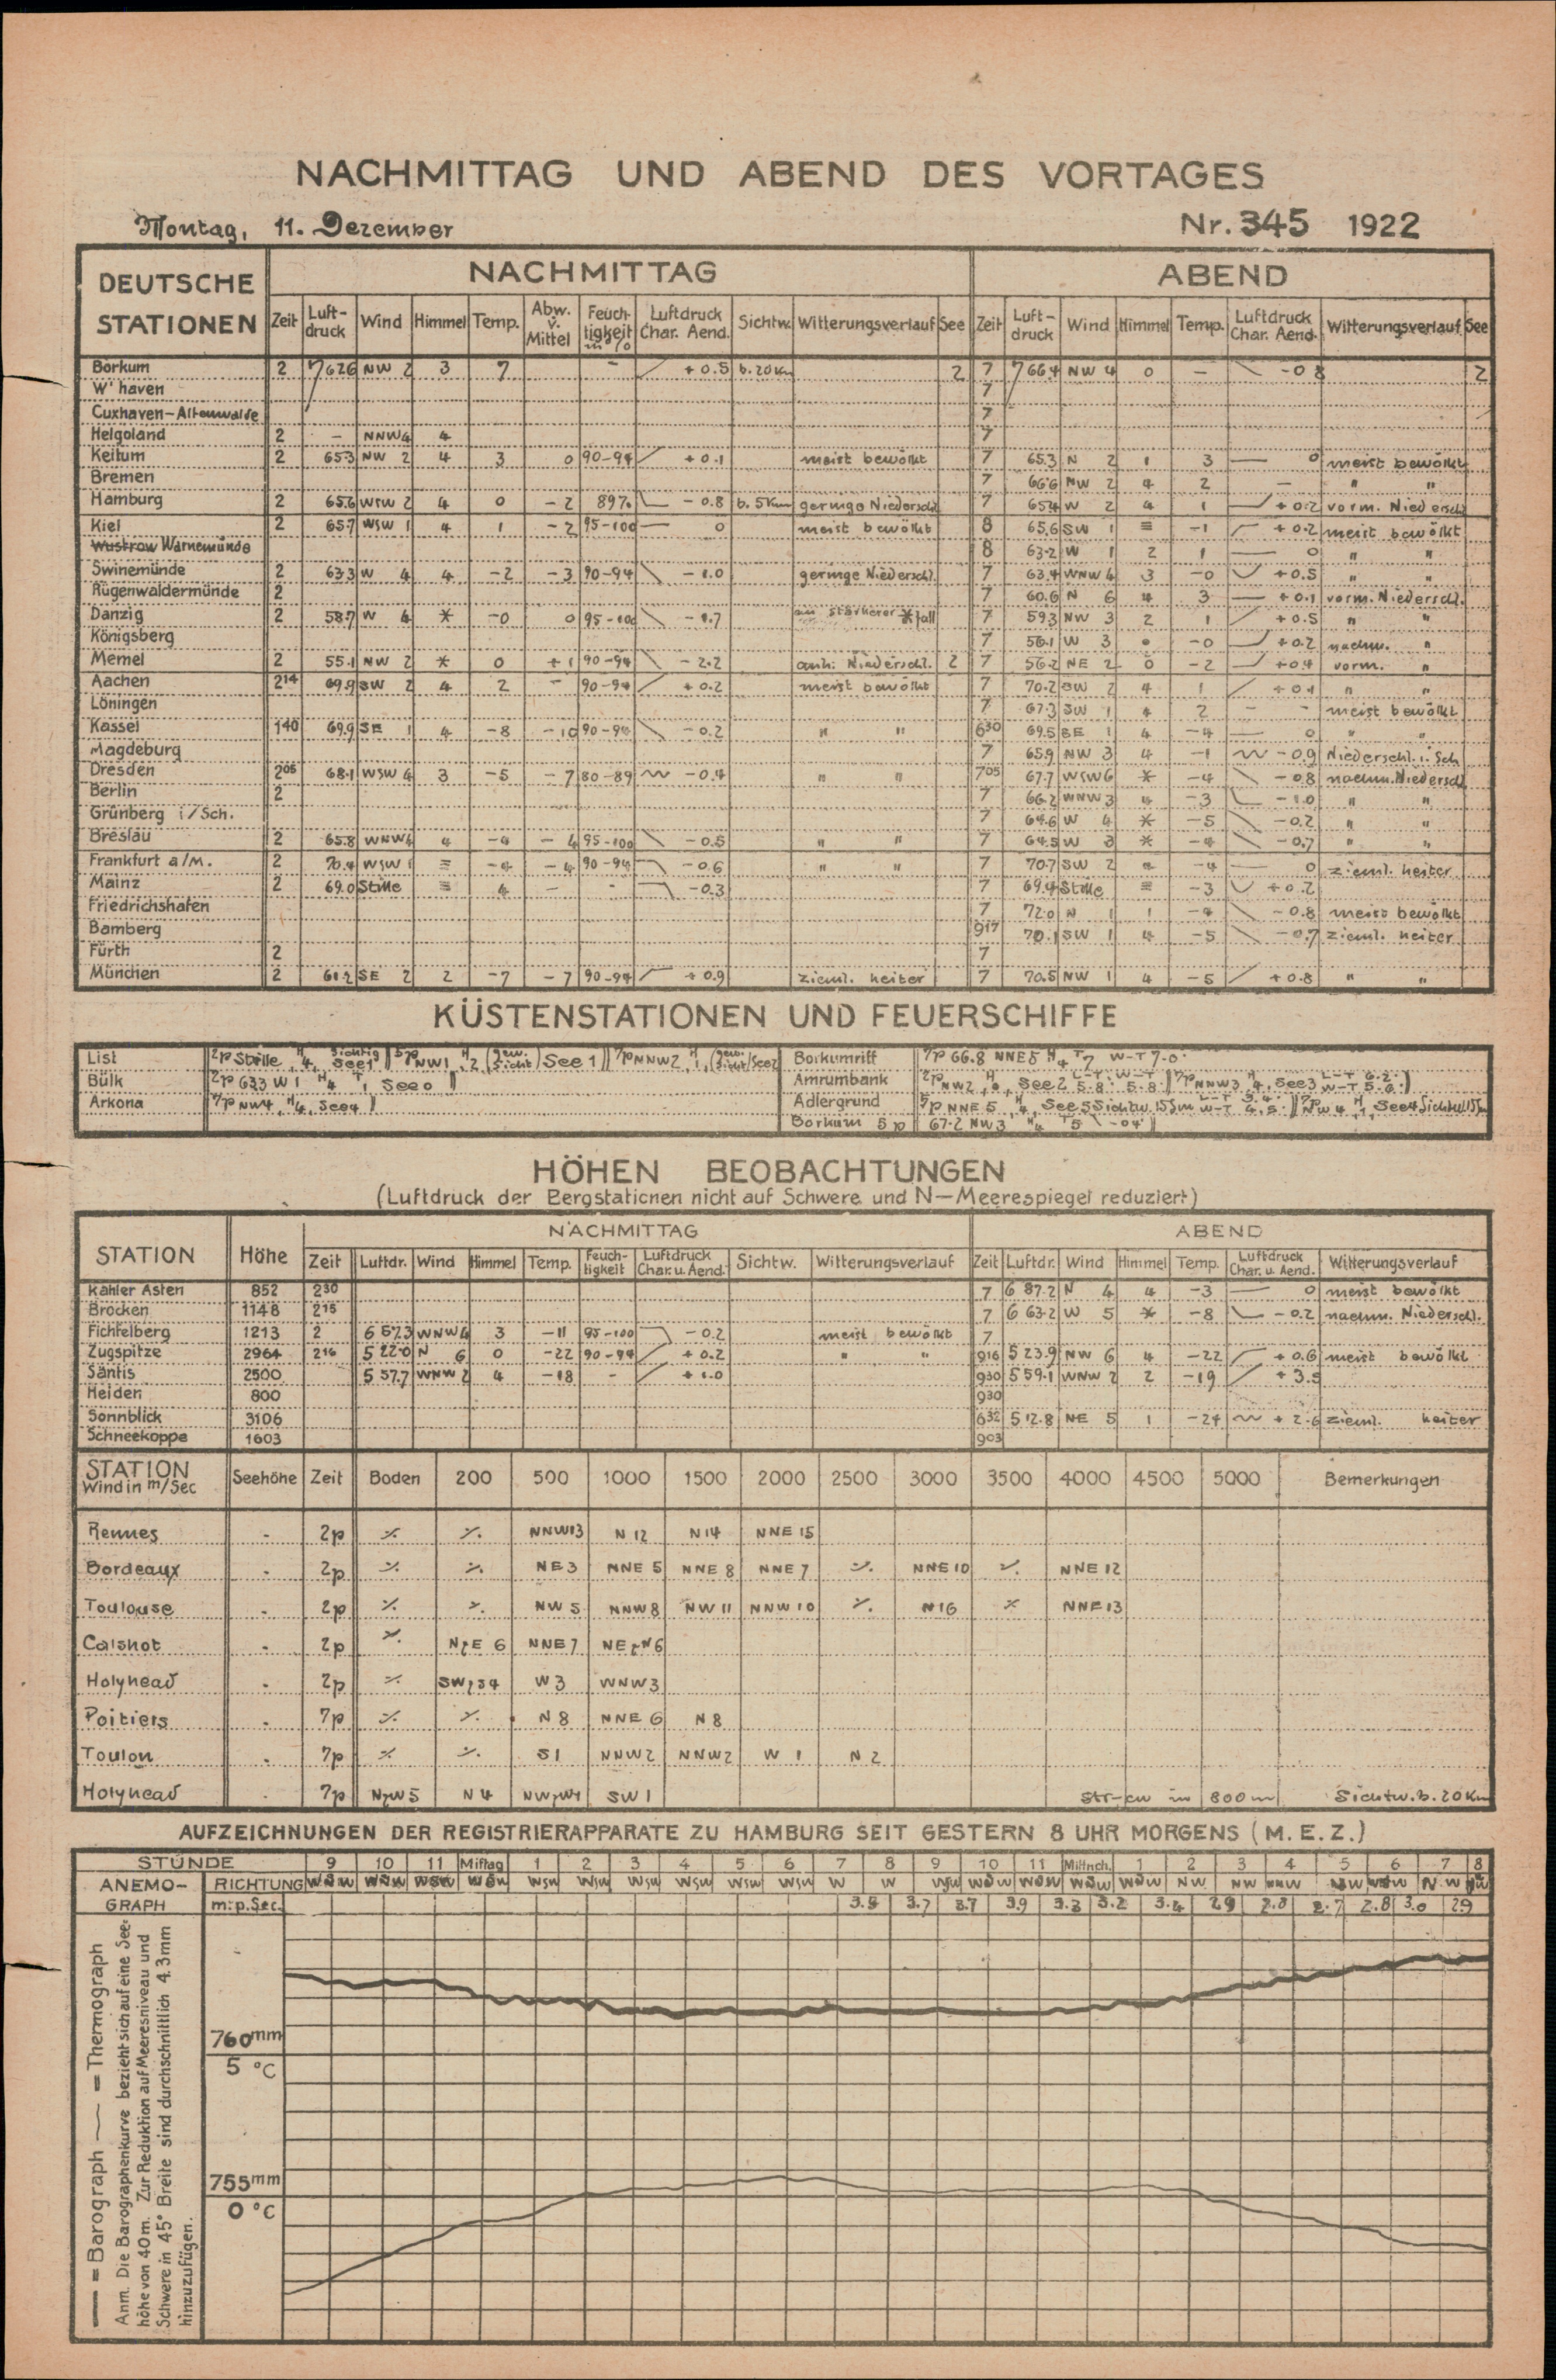 NACHMITTAG UND ABEND DES VORTAGES
Montag, 11. Dezember Nr. 345 1922
DEUTSCHE STATIONEN NACHMITTAG ABEND
Zeit Luft-druck Wind Himmel Temp. Abw. v. Mittel Feuch-tigkeit in % Luftdruck Char. Aend. Sichtw. Witterungsverlauf See Zeit Luft-druck Wind Himmel Temp. Luftdruck Char. Aend. Witterungsverlauf See
Borkum 2 762.6 NW 2 3 7 - +0.5 b. 20 Km 2 7 766.4 NW 4 0 - -0.8 2
W'haven 7
Cuxhaven-Altenwalde 7
Helgoland 2 - NNW 4 4 7
Keitum 2 65.3 NW 2 4 3 0 90-94 +0.1 meist bewölkt 7 65.3 N 2 1 3 0 meist bewölkt
Bremen 7 66.6 NW 2 4 2 - " "
Hamburg 2 65.6 WSW 2 4 0 -2 89% -0.8 b. 5 Km geringe Niederschl. 7 65.4 W 2 4 1 +0.2 vorm. Niederschl.
Kiel 2 65.7 WSW 1 4 1 -2 95-100 0 meist bewölkt 8 65.6 SW 1 ≡ -1 +0.2 meist bewölkt
Wustrow Warnemünde 8 63.2 W 1 2 1 0 " "
Swinemünde 2 63.3 W 4 4 -2 -3 90-94 -1.0 geringe Niederschl. 7 63.4 WNW 4 3 -0 +0.5 " "
Rügenwaldermünde 2 7 60.6 N 6 4 3 +0.1 vorm. Niederschl.
Danzig 2 58.7 W 4 * -0 0 95-100 -1.7 stärkerer * fall 7 59.3 NW 3 2 1 +0.5 " "
Königsberg 7 56.1 W 3 -0 +0.2 nachm. "
Memel 2 55.1 NW 2 * 0 +1 90-94 -2.2 anh. Niederschl. 2 7 56.2 NE 2 0 -2 +0.4 vorm. "
Aachen 2 14 69.9 SW 2 4 2 - 90-94 +0.2 meist bewölkt 7 70.2 SW 2 4 1 +0.1 " "
Löningen 7 67.3 SW 1 4 2 - - meist bewölkt
Kassel 1 40 69.9 SE 1 4 -8 -10 90-94 -0.2 " " 6 30 69.5 SE 1 4 -4 0 " "
Magdeburg 7 65.9 NW 3 4 -1 -0.9 Niederschl. i. Sch
Dresden 2 05 68.1 WSW 4 3 -5 -7 80-89 -0.4 " " 7 05 67.7 WSW 6 * -4 -0.8 nachm. Niederschl
Berlin 2 7 66.2 WNW 3 4 -3 -1.0 " "
Grünberg i/Sch. 7 64.6 W 4 * -5 -0.2 " "
Breslau 2 65.8 WNW 4 4 -4 -4 95-100 -0.5 " " 7 64.5 W 3 * -4 -0.7 " "
Frankfurt a/M. 2 70.4 WSW 1 ≡ -4 -4 90-94 -0.6 " " 7 70.7 SW 2 -4 0 zieml. heiter
Mainz 2 69.0 Stille ≡ 4 - - -0.3 7 69.4 Stille ≡ -3 +0.2
Friedrichshafen 7 72.0 N 1 1 -4 -0.8 meist bewölkt
Bamberg 9 17 70.1 SW 1 4 -5 -0.7 zieml. heiter
Fürth 2 7
München 2 61.2 SE 2 2 -7 -7 90-94 +0.9 zieml. heiter 7 70.5 NW 1 4 -5 +0.8 " "
KÜSTENSTATIONEN UND FEUERSCHIFFE
List 2p Stille, H 4, Sichtig See 1 || 5p NW1 H 2, (gew. Sicht) See 1 || 7p NNW2, H 1, (gew. Sicht) See 2
Bülk 2p 63.3 W 1 H 4 T 1, See 0 ||
Arkona 7p NW4, H 4, See 4 ||
Borkumriff 7p 66.8 NNE 5 H 4 T 7 W-T 7.0
Amrumbank 2p NW2, H 0, See 2 L-T 5.8 W-T 5.8 || 7p NNW3 H 4, See 3 L-T 6.2 W-T 5.6 ||
Adlergrund 5p NNE 5, H 4, See 5 Sichtw. 15 Sm L-T 3.4 W-T 4.5 || 7p NW 4, H 1, See 4 Sichtw. 15 Sm
Borkum 5p 67.2 NW 3 H 4 T 5 -0.4 ||
HÖHEN BEOBACHTUNGEN
(Luftdruck der Bergstationen nicht auf Schwere und N-Meerespiegel reduziert)
STATION Höhe NACHMITTAG ABEND
Zeit Luftdr. Wind Himmel Temp. Feuch-tigkeit Luftdruck Char. u. Aend. Sichtw. Witterungsverlauf Zeit Luftdr. Wind Himmel Temp. Luftdruck Char. u. Aend. Witterungsverlauf
Kahler Asten 852 2 30 7 687.2 N 4 4 -3 0 meist bewölkt
Brocken 1148 2 15 7 663.2 W 5 * -8 -0.2 nachm. Niederschl.
Fichtelberg 1213 2 657.3 WNW 4 3 -11 95-100 -0.2 meist bewölkt 7
Zugspitze 2964 2 16 522.0 N 6 0 -22 90-94 +0.2 " " 9 16 523.9 NW 6 4 -22 +0.6 meist bewölkt
Säntis 2500 557.7 WNW 2 4 -18 - +1.0 9 30 559.1 WNW 2 2 -19 +3.5
Heiden 800 9 30
Sonnblick 3106 6 32 512.8 NE 5 1 -24 +2.6 zieml. heiter
Schneekoppe 1603 9 03
STATION Wind in m/Sec Seehöhe Zeit Boden 200 500 1000 1500 2000 2500 3000 3500 4000 4500 5000 Bemerkungen
Rennes - 2p ⁒ ⁒ NNW13 N 12 N14 NNE 15
Bordeaux - 2p ⁒ ⁒ NE3 NNE 5 NNE 8 NNE 7 ⁒ NNE 10 ⁒ NNE 12
Toulouse - 2p ⁒ ⁒ NW 5 NNW8 NW 11 NNW 10 ⁒ N16 ⁒ NNE 13
Calshot - 2p ⁒ NzE 6 NNE 7 NEzN6
Holyhead - 2p ⁒ SWzS4 W 3 WNW3
Poitiers - 7p ⁒ ⁒ N 8 NNE 6 N 8
Toulon - 7p ⁒ ⁒ S1 NNW2 NNW2 W 1 N 2
Holyhead - 7p NzW5 N 4 NWzW1 SW 1 Str-cu in 800 m Sichtw. b. 20 Km
AUFZEICHNUNGEN DER REGISTRIERAPPARATE ZU HAMBURG SEIT GESTERN 8 UHR MORGENS (M.E.Z.)
STUNDE 9 10 11 Mittag 1 2 3 4 5 6 7 8 9 10 11 Mittnch. 1 2 3 4 5 6 7 8
ANEMO-GRAPH RICHTUNG WSW WSW WSW WSW WSW WSW WSW WSW WSW WSW W W WSW WSW WSW WSW WSW NW NW
m. p. Sec. 3.8 3.7 3.7 3.9 3.3 3.2 3.4 2.9 2.8 2.7 2.8 3.0 2.9
760mm
5 °C
755mm
0 °C
— = Barograph — = Thermograph
Anm. Die Barographenkurve bezieht sich auf eine See-
höhe von 40m. Zur Reduktion auf Meeresniveau und
Schwere in 45° Breite sind durchschnittlich 4.3mm
hinzuzufügen.